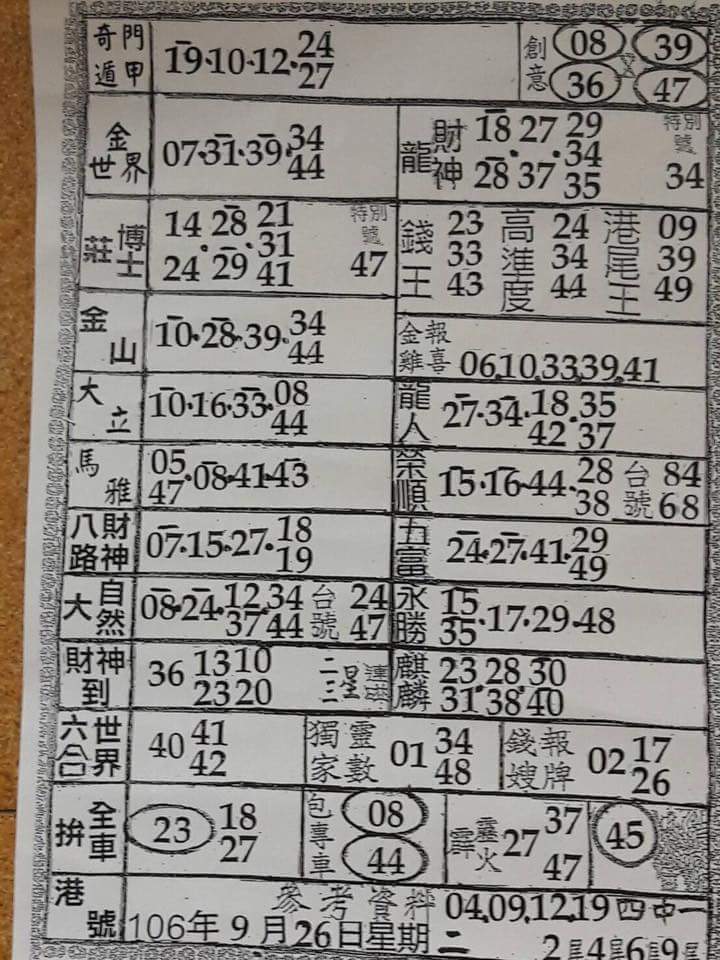 奇門遁甲 19·10·12·24 27 創意 08 39 36 47
金世界 07·31·39·34 44
龍 財神 18 27 29 34 28 37 35 特別號 34
莊博士 14 28 21 31 24 29 41 特別號 47
錢王 23 33 43 高進度 24 34 44 港尾王 09 39 49
金山 10·28·39·34 44
金雞報喜 06.10.33.39.41
大立 10·16·33·08 44
龍人 27·34·18·35 42 37
馬雅 05 47·08·41·43
榮順 15·16·44·28 38 台號 84 68
八路財神 07·15·27·18 19
五富 24·27·41·29 49
大自然 08·24·12·34 37 44 台號 24 47
永勝 15 35·17·29·48
財神到 36 13 10 23 20 二三星連碰
麒麟 23 28 30 31 38 40
六合世界 40 41 42
獨家靈數 01 34 48
錢嫂報牌 02 17 26
拚全車 23 18 27
包專車 08 44
霹靂火 27 37 47
45
港號 參考資料 04.09.12.19 四中一
106年9月26日星期二 2尾4尾6尾9尾